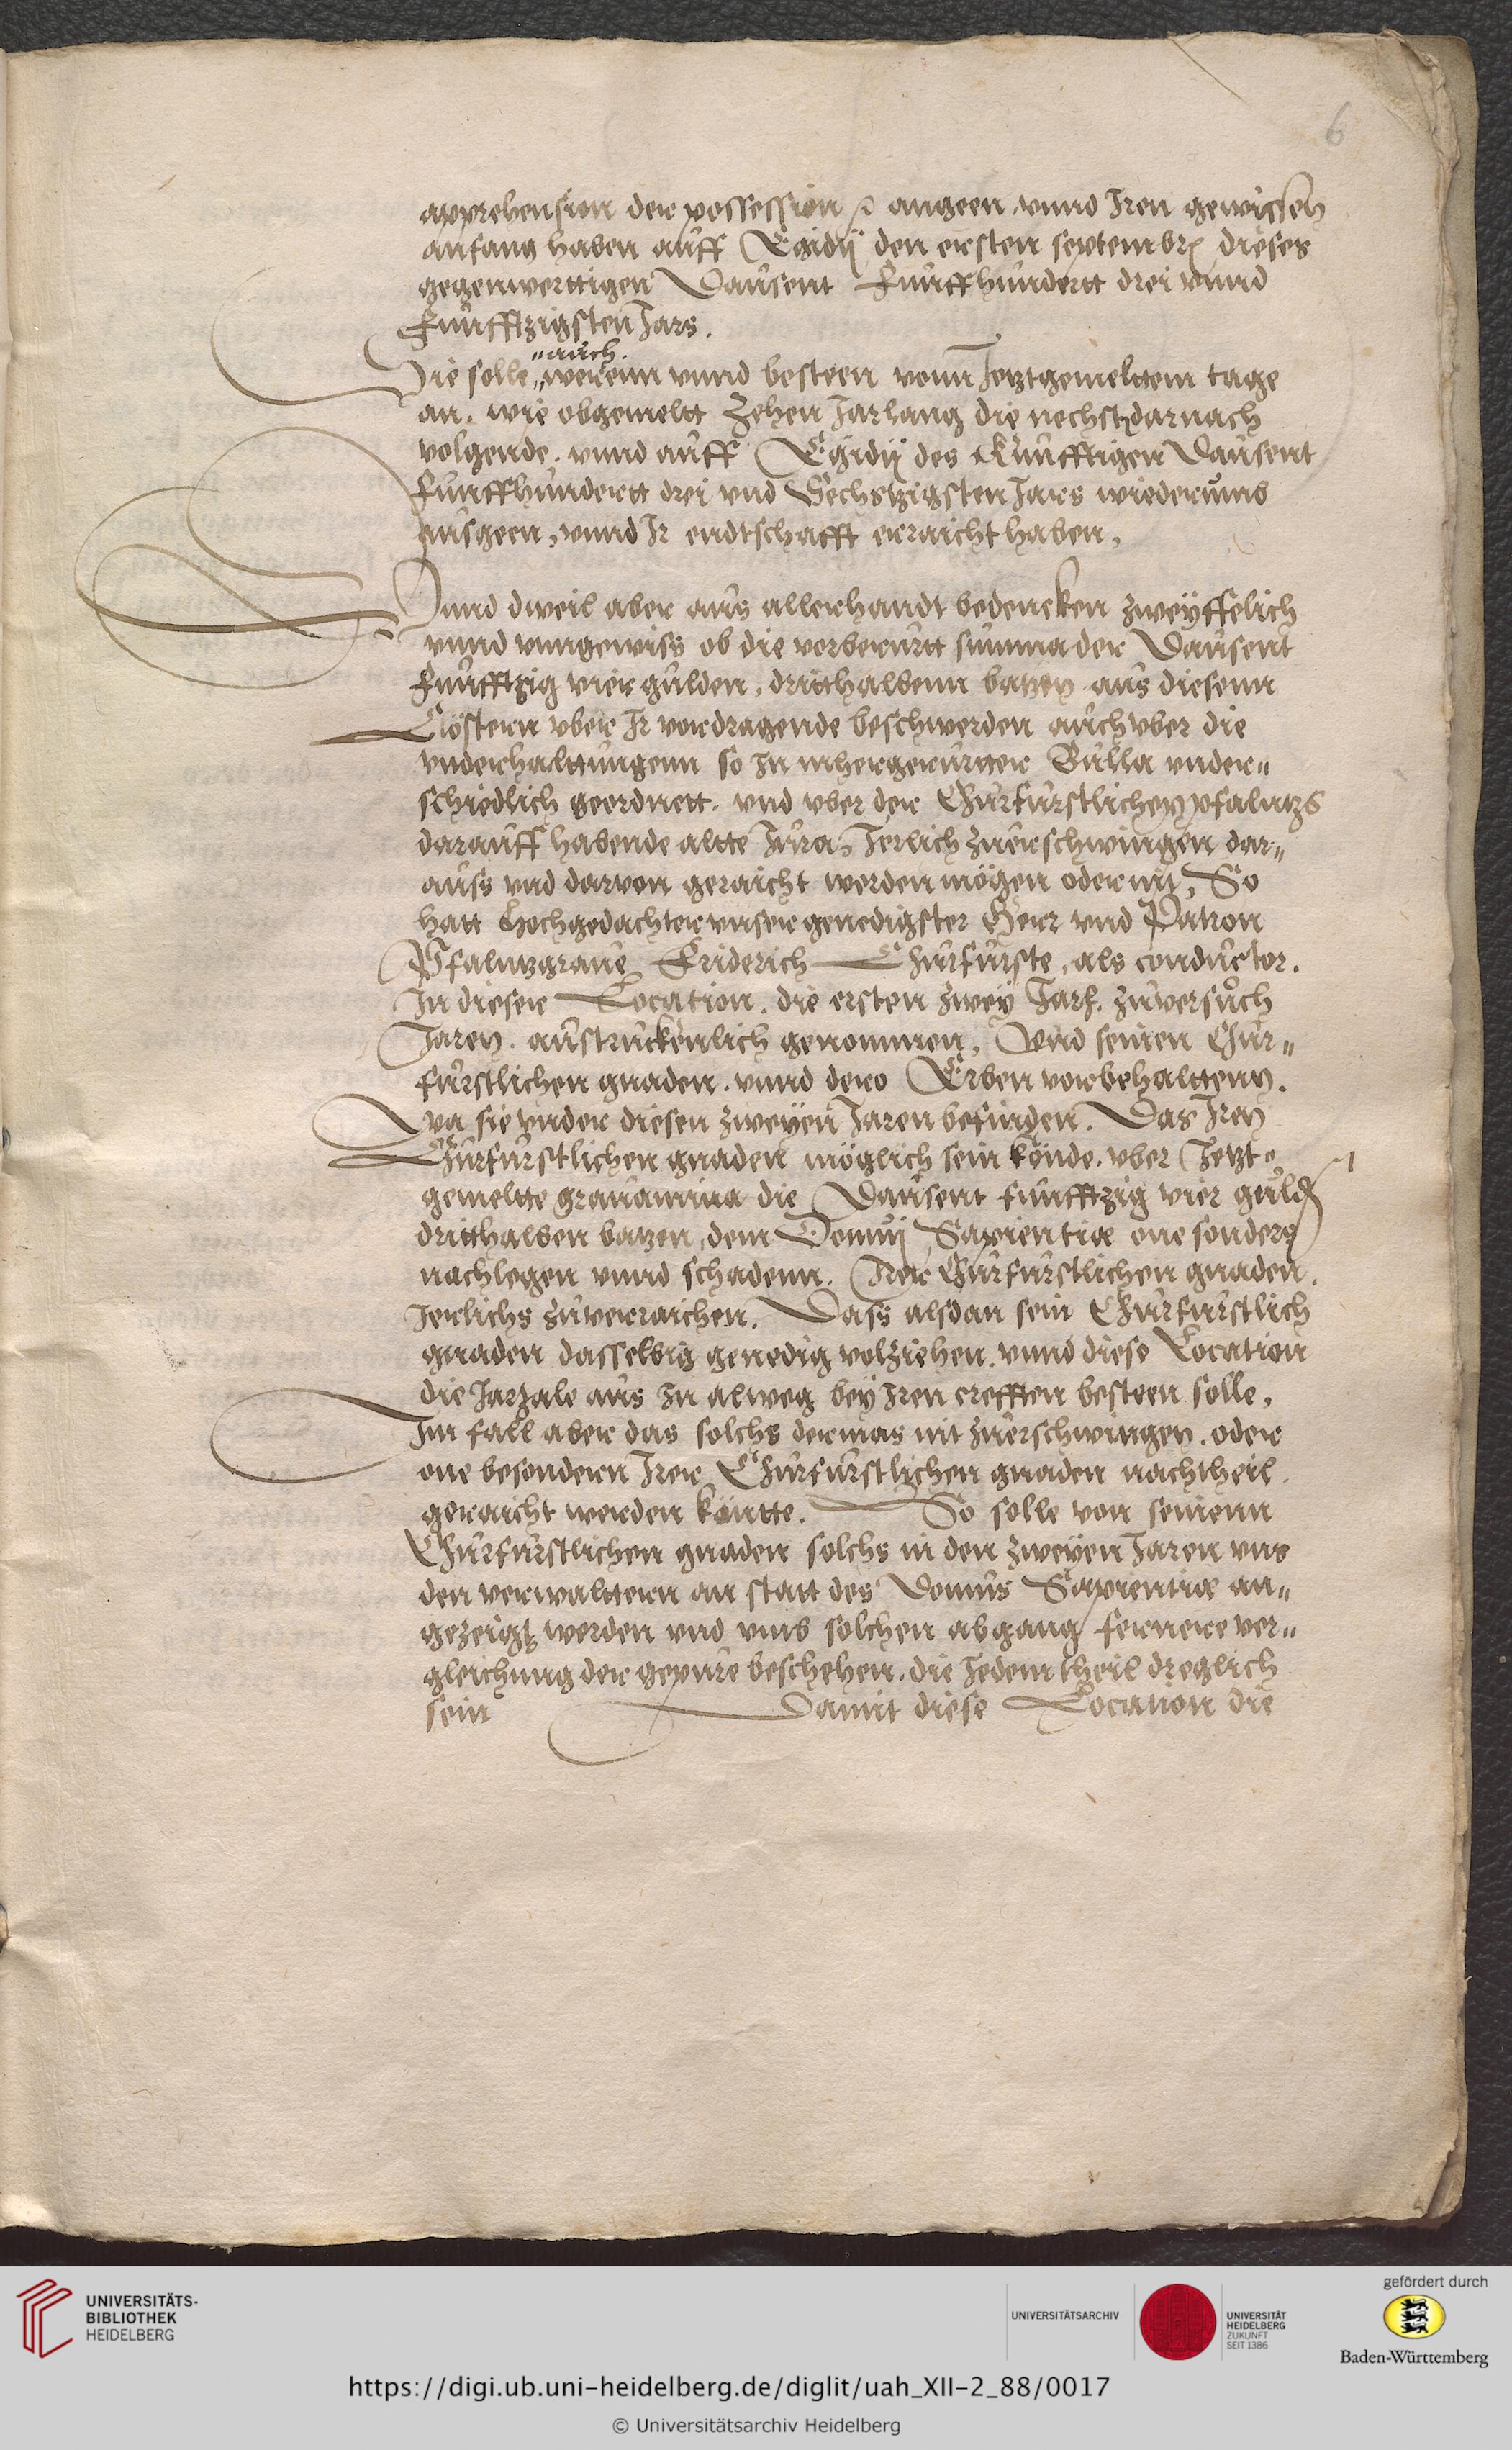 6
apprehension der possession angeen vnnd Iren gewissen
anfang haben auff Egidij den ersten septembr dieses
gegenwerttigen Dausent Funffhundertt drei vnnd
Funfftzigsten Jars.
auch
Die solle werenn vnnd besteen vonn Jetztgemeltem tage
an. wie obgemelt Zehen Jar lang die nechst darnach
volgende. vnnd auff Egidij des Kunfftigen Dausent
funffhundertt drei vnd Sechstzigsten Jars wiederumb
ausgeen, vnnd Ir endtschafft erraicht haben,
Vnnd dweil aber aus allerhandt bedencken zweyffelich
vnnd vngewiss ob die vorberurtt summa der Dausent
funfftzig vier gulden, dritthalbenn batzen aus diesenn
Clöstern vber Ir vordragende beschwerden auch vber die
vnderhalttungenn so In mhergerurtter Bulla vnder„
schiedlich geordnett. vnd vber der Churfurstlichen pfalntzs
darauff habende altte Jura, Jerlich zuerschwingen dar„
auss vnd darvon geraicht werden mögen oder nit, So
hatt hochgedachter vnser genedigster Herr vnd Patron
Pfalntzgraue Friderich Churfurste, als conductor.
In dieser Location. die ersten zwey Jar zuuersuch
Jaren. austruckenlich genommen, Vnd seinen Chur„
furstlichen gnaden. vnnd dero Erben vorbehalttenn.
Wa sie vnder diesen zweyen Jaren befinden. Das Iren
Churfurstlichen gnaden möglich sein könde. vber Jetzt„
gemeltte grauamina die Dausent funfftzig vier guld
dritthalben batzen, dem Domuj Sapientiæ one sonders
nachlegen vnnd schadenn. Irer Churfurstlichen gnaden.
Jerlichs zuuerraichen. Dass alsdan sein Churfurstlich
gnaden dasselbig genedig volziehen. vnnd diese Location
die Jarzale aus In alweg bey Iren crefften besteen solle,
Im fall aber das solchs dermas nit zuerschwingen. oder
one besondern Irer Churfurstlichen gnaden nachtheil
geraicht werden köntte. So solle von seinenn
Churfurstlichen gnaden solchs in den zweyen Jaren vns
den verwalttern an statt des Domus Sapientiæ an„
gezeigt werden vnd vmb solchen abgang fernere ver„
gleichung der gepure beschehen. die Jedem theil dreglich
sein Damit diese Location die
UNIVERSITÄTS-
BIBLIOTHEK
HEIDELBERG
UNIVERSITÄTSARCHIV
UNIVERSITÄT
HEIDELBERG
ZUKUNFT
SEIT 1386
gefördert durch
Baden-Württemberg
https://digi.ub.uni-heidelberg.de/diglit/uah_XII-2_88/0017
© Universitätsarchiv Heidelberg